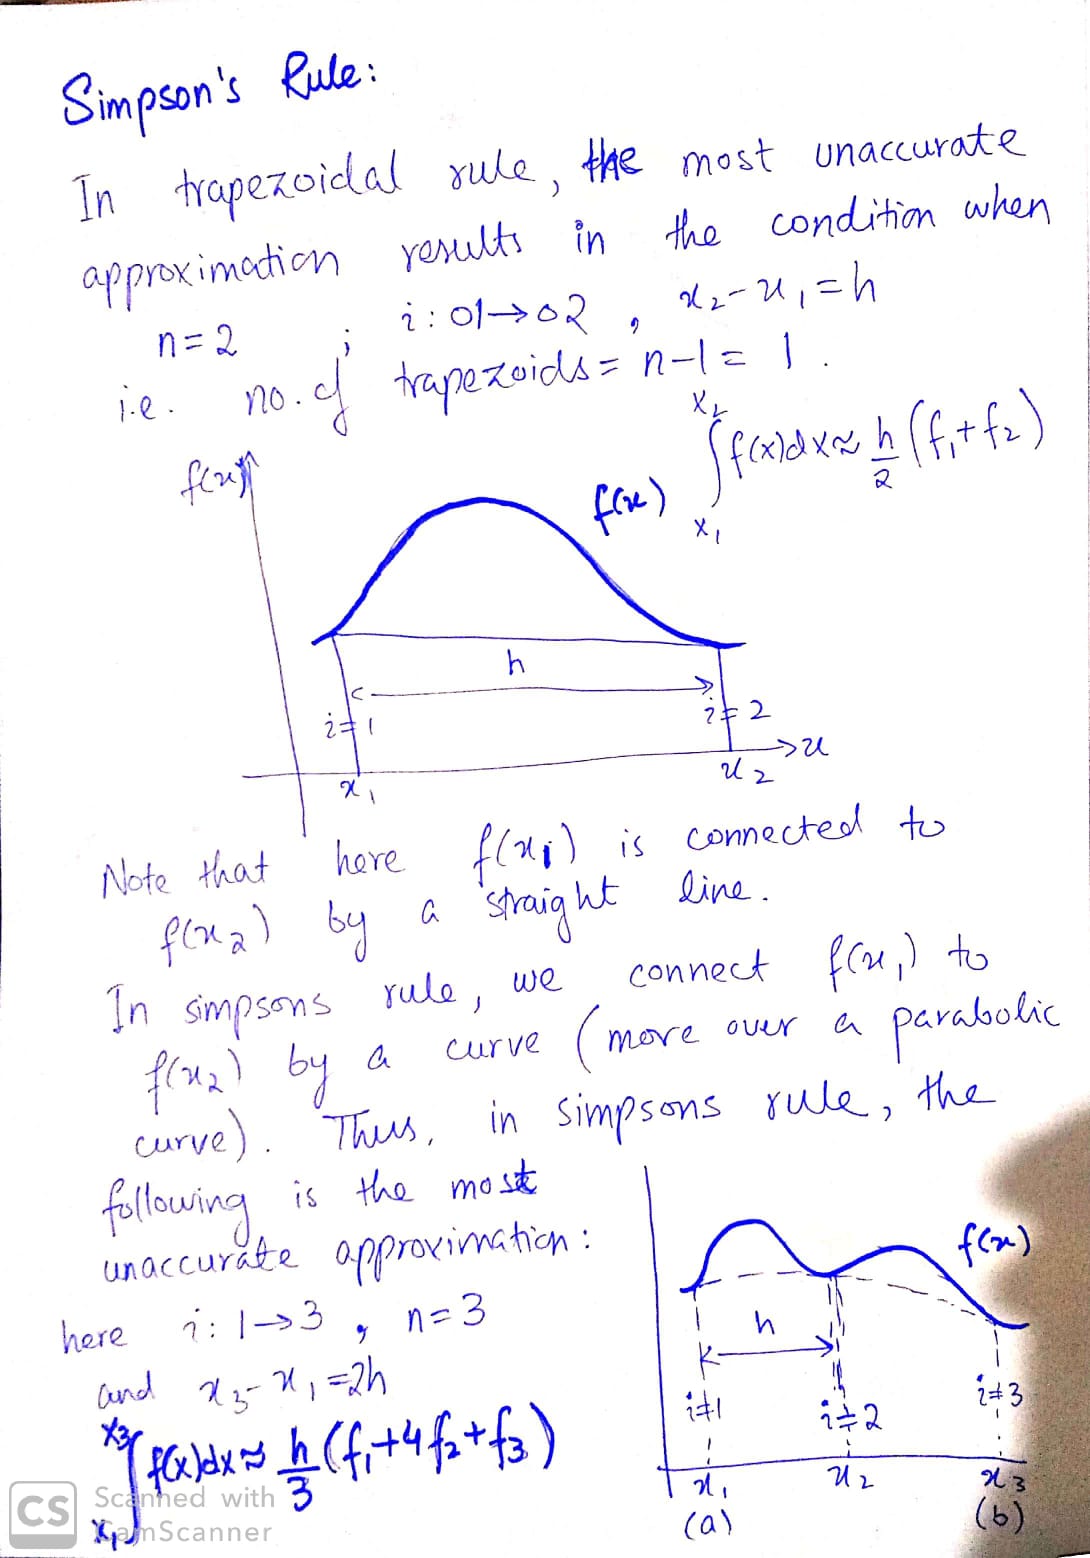 Simpson's Rule:
In trapezoidal rule, the most unaccurate
approximation results in the condition when
n=2 ; i:01→02 , x₂-x₁=h
i.e. no. of trapezoids = n-1 = 1.
∫ₓ₁ˣ² f(x)dx≈ h/2 (f₁+f₂)
f(x)
f(x)
h
i=1
i=2
→x
x₁
x₂
Note that here f(x₁) is connected to
f(x₂) by a straight line.
In simpsons rule, we connect f(x₁) to
f(x₂) by a curve (more over a parabolic
curve). Thus, in simpsons rule, the
following is the most
unaccurate approximation:
here i:1→3 , n=3
and x₃-x₁=2h
∫ₓ₁ˣ³ f(x)dx≈ h/3 (f₁+4f₂+f₃)
f(x)
h
i=1
i=2
i=3
x₁
x₂
x₃
(a)
(b)
CS Scanned with
CamScanner